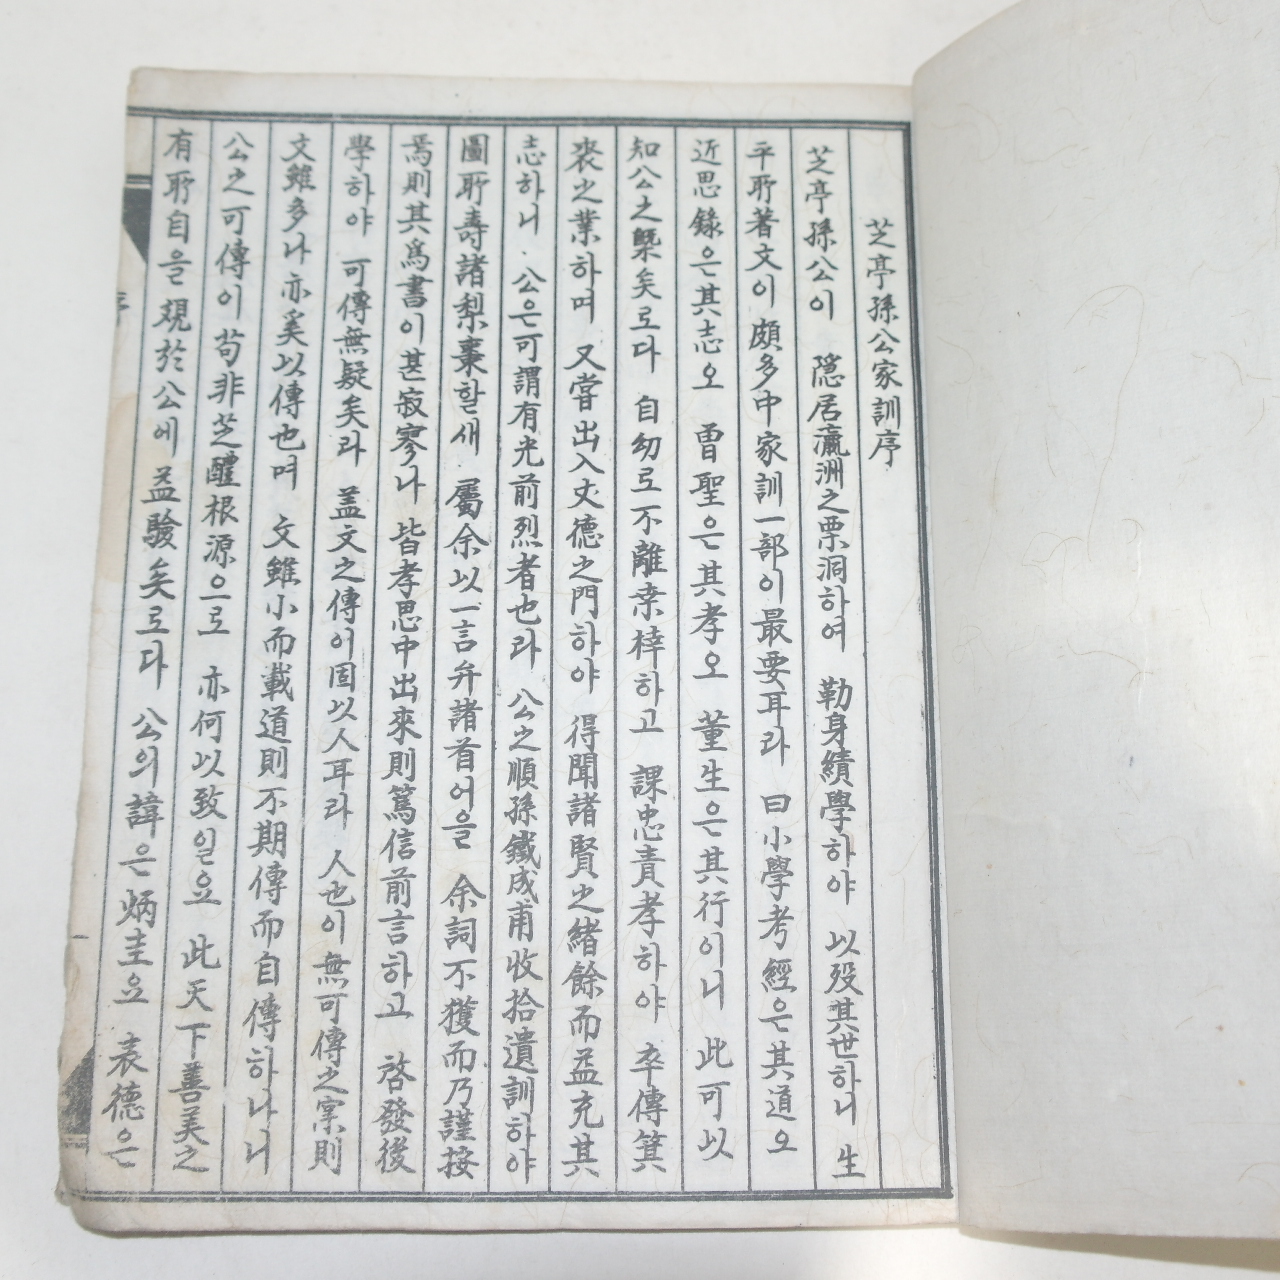 芝亭孫公家訓序
芝亭孫公이 隱居瀛洲之栗洞하여 勤身績學하야 以歿其世하니 生
平所著文이 頗多中家訓一部이 最要耳라 曰小學考經은其道오
近思錄은其志오 曾聖은其孝오 董生은其行이니 此可以
知公之槩矣로다 自幼로不離桒梓하고 課忠責孝하야 卒傳箕
裘之業하며 又嘗出入丈德之門하야 得聞諸賢之緖餘而益充其
志하니 公은可謂有光前烈者也라 公之順孫鐵成甫收拾遺訓하야
圖所壽諸梨棗할새 屬余以一言弁諸首어을 余詞不獲而乃謹按
焉則其爲書이甚寂寥나 皆孝思中出來則篤信前言하고 啓發後
學하야 可傳無疑矣라 盖文之傳이固以人耳라 人也이無可傳之宲則
文雖多나亦奚以傳也며 文雖小而載道則不期傳而自傳하나니
公之可傳이苟非芝醴根源으로 亦何以致일요 此天下善美之
有所自을覌於公에益驗矣로다 公의諱은炳圭요 表德은
序